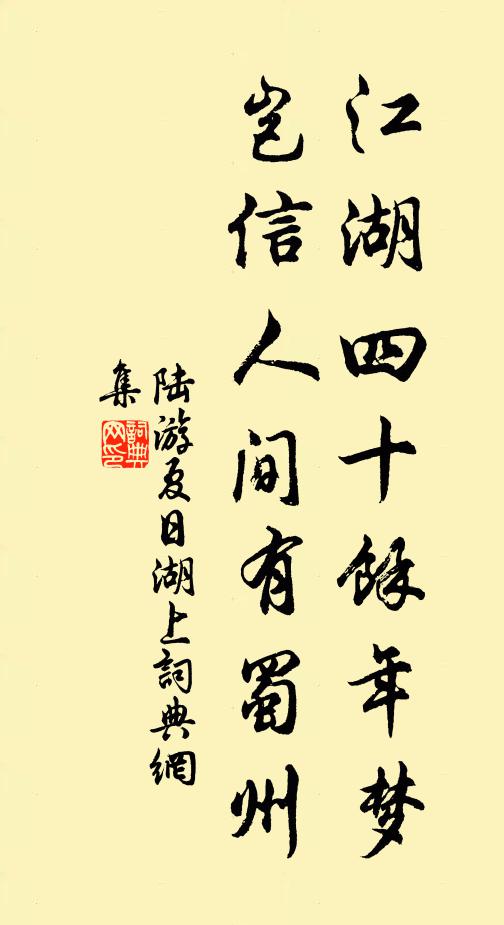 江湖四十餘年梦
岂信人间有蜀州
陆游夏日湖上詞典網
集
詞典
网印